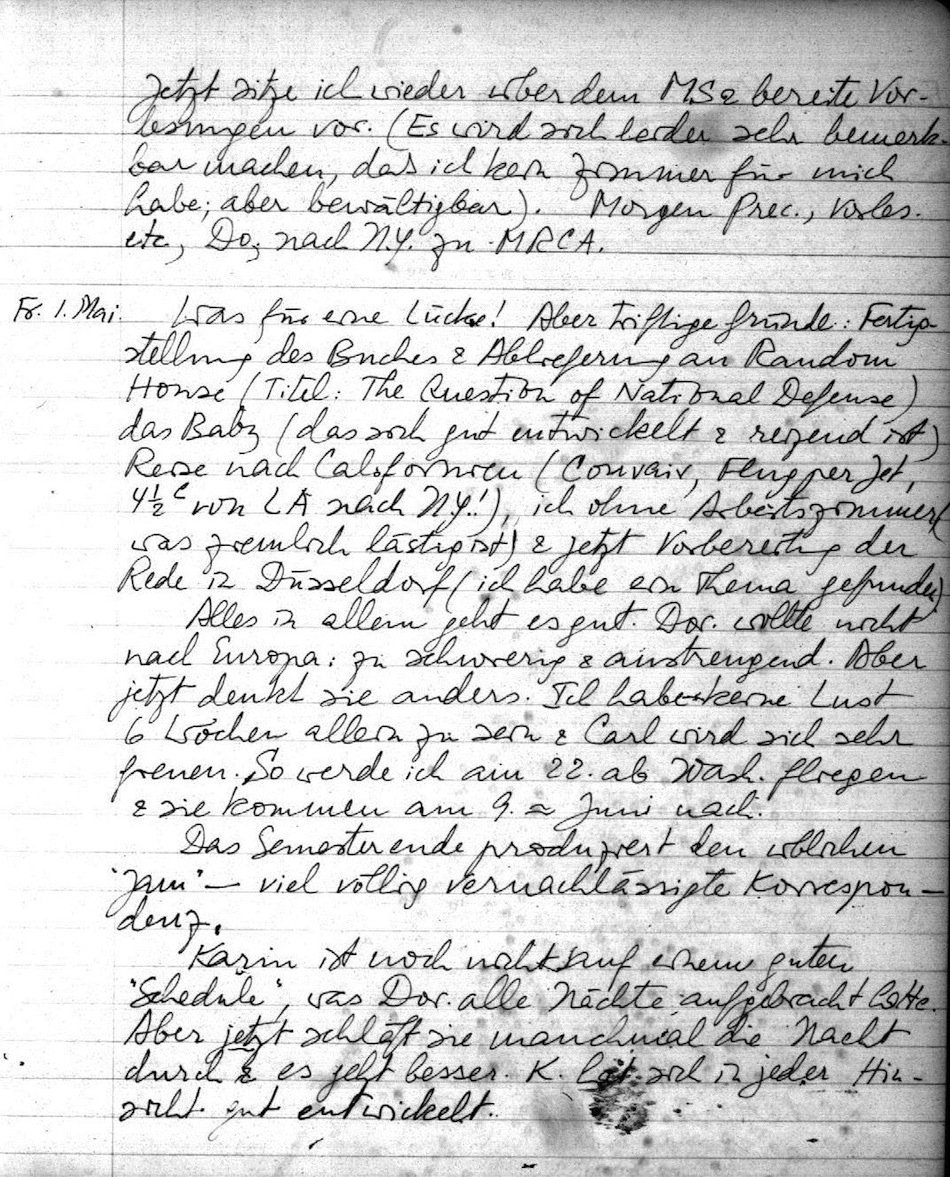 Jetzt sitze ich wieder über dem MS & bereite Vor-
lesungen vor. (Es wird sich leider sehr bemerk-
bar machen, das ich kein Zimmer für mich
habe; aber bewältigbar). Morgen Prec., Vorles.
etc, Do, nach N.Y. zu MRCA.
Fr. 1. Mai. Was für eine Lücke! Aber triftige Gründe: Fertig-
stellung des Buches & Ablieferung an Random
House (Titel: The Question of National Defense)
das Baby (das sich gut entwickelt & reizend ist)
Reise nach Californien (Convair, Flug per Jet,
4½ von LA nach NY!), ich ohne Arbeitszimmer (
was ziemlich lästig ist) & jetzt Vorbereitung der
Rede in Düsseldorf (ich habe ein Thema gefunden)
Alles in allem geht es gut. Dor. wollte nicht
nach Europa: zu schwierig & anstrengend. Aber
jetzt denkt sie anders. Ich habe keine Lust
6 Wochen allein zu sein & Carl wird sich sehr
freuen. So werde ich am 22. ab Wash. fliegen
& sie kommen am 9. ≈ Juni nach.
Das Semesterende produziert den üblichen
"Jam" — viel völlig vernachlässigte Korrespon-
denz.
Karin ist noch nicht auf einem guten
"Schedule", was Dor. alle Nächte aufgebracht hatte.
Aber jetzt schläft sie manchmal die Nacht
durch & es geht besser. K. hat sich in jeder Hin-
sicht gut entwickelt.